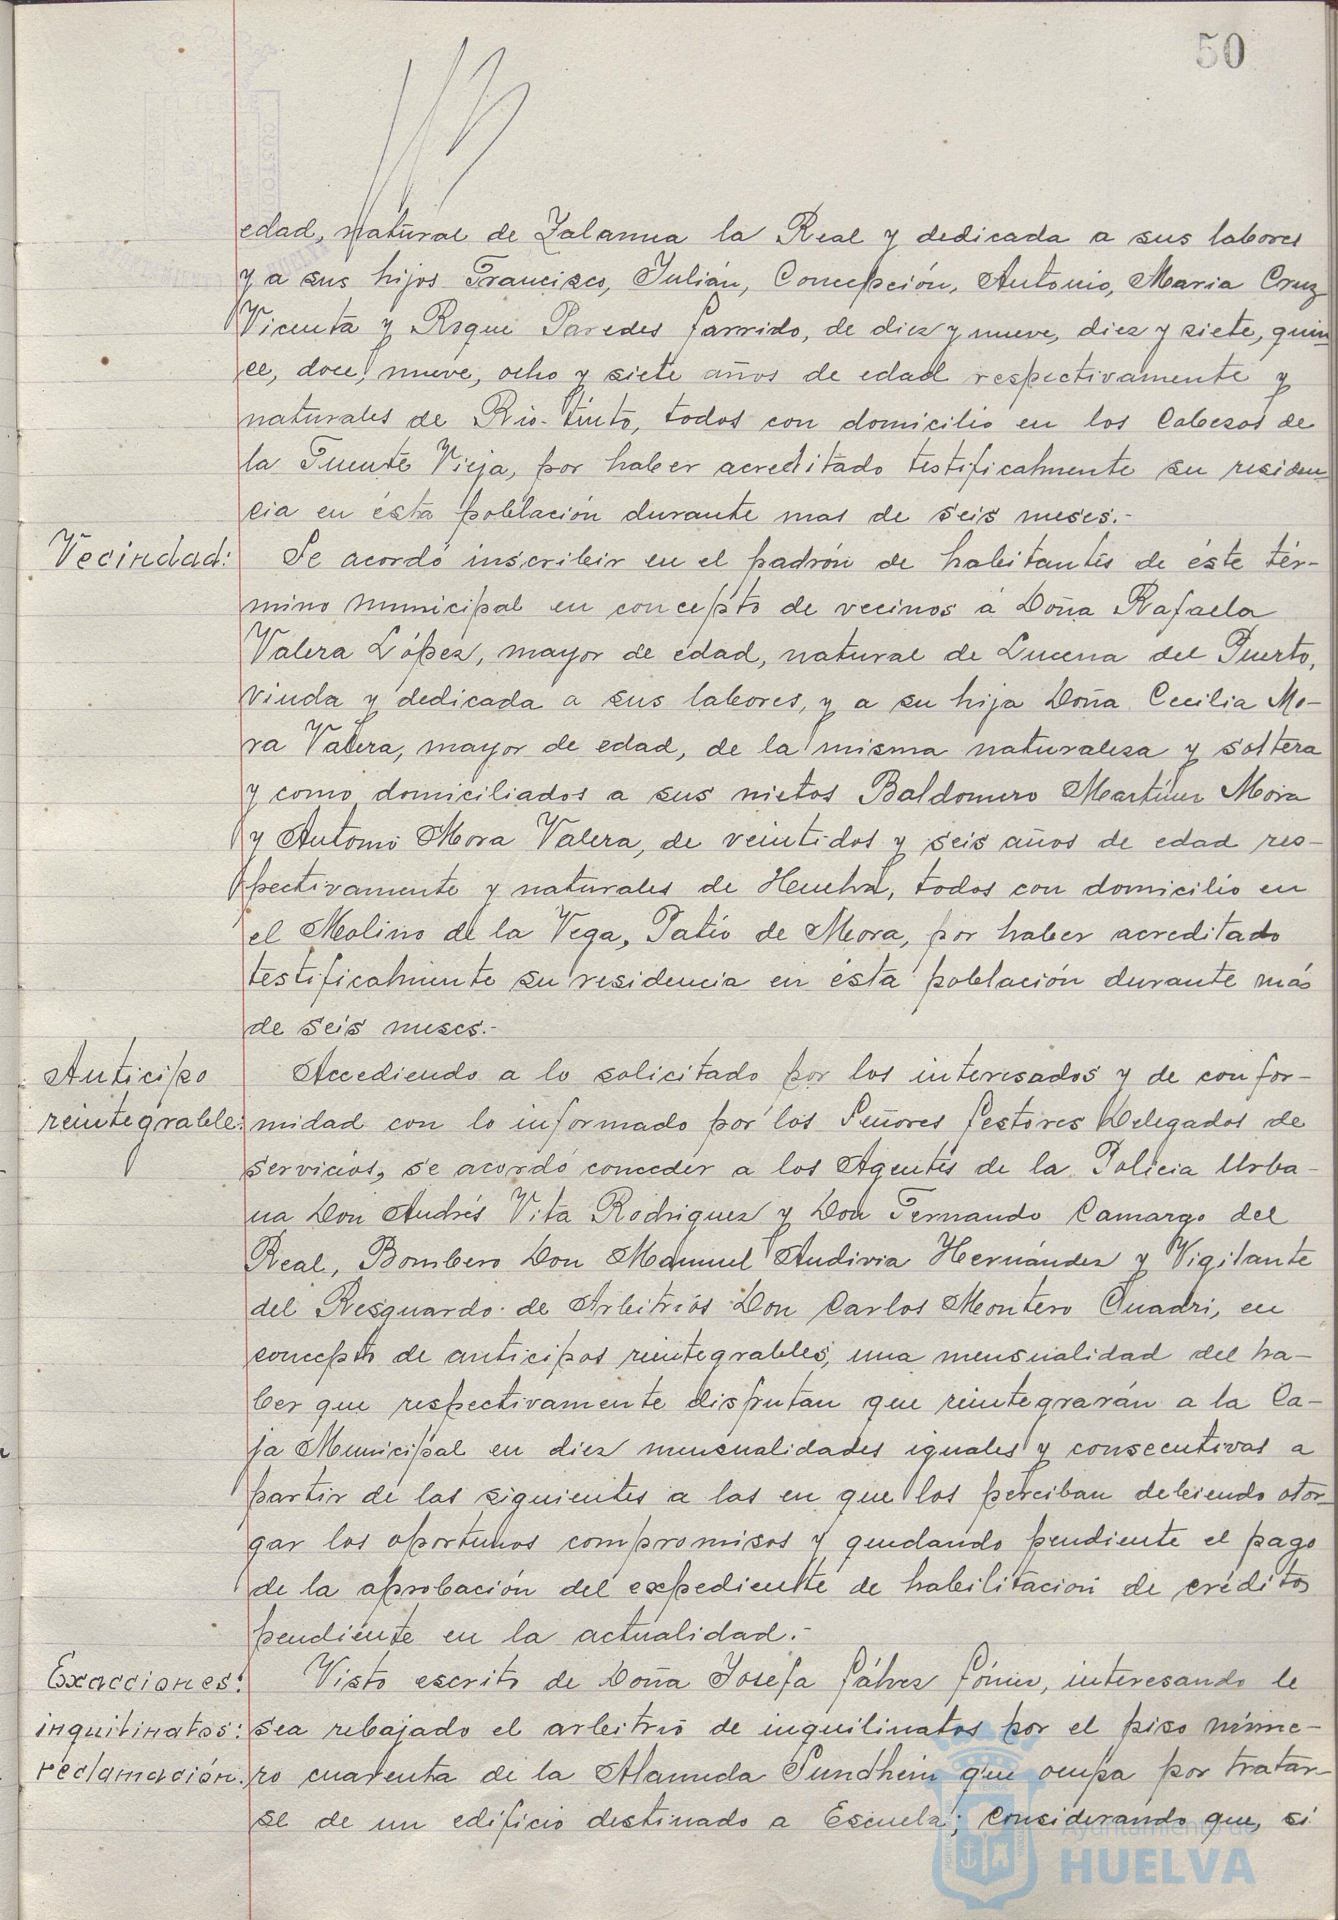 50
edad, natural de Zalamea la Real y dedicada a sus labores
y a sus hijos Francisco, Julián, Concepción, Antonio, Maria Cruz
Vicenta y Roque Paredes Garrido, de diez y nueve, diez y siete, quin-
ce, doce, nueve, ocho y siete años de edad respectivamente y
naturales de Rio-tinto, todos con domicilio en los Cabezos de
la Fuente Vieja, por haber acreditado testificalmente su residen-
cia en ésta población durante mas de seis meses.-
Vecindad: Se acordó inscribir en el padrón de habitantes de éste tér-
mino municipal en concepto de vecinos á Doña Rafaela
Valera López, mayor de edad, natural de Lucena del Puerto,
viuda y dedicada a sus labores, y a su hija Doña Cecilia Mo-
ra Valera, mayor de edad, de la misma naturaleza y soltera
y como domiciliados a sus nietos Baldomero Martínez Mora
y Antonio Mora Valera, de veintidos y seis años de edad res-
pectivamente y naturales de Huelva, todos con domicilio en
el Molino de la Vega, Patio de Mora, por haber acreditado
testificalmente su residencia en ésta población durante más
de seis meses.-
Anticipo Accediendo a lo solicitado por los interesados y de confor-
reintegrable: midad con lo informado por los Señores Gestores Delegados de
servicios, se acordó conceder a los Agentes de la Policia Urba-
na Don Andrés Vita Rodriguez y Don Fernando Camargo del
Real, Bombero Don Manuel Andivia Hernández y Vigilante
del Resguardo de Arbitrios Don Carlos Montero Cuadri, en
concepto de anticipos reintegrables, una mensualidad del ha-
ber que respectivamente disfrutan que reintegrarán a la Ca-
ja Municipal en diez mensualidades iguales y consecutivas a
partir de las siguientes a las en que los perciban debiendo otor-
gar los oportunos compromisos y quedando pendiente el pago
de la aprobación del expediente de habilitación de créditos
pendiente en la actualidad.-
Exacciones: Visto escrito de Doña Josefa Gálvez Gómez, interesando le
inquilinatos: sea rebajado el arbitrio de inquilinatos por el piso núme-
reclamación. ro cuarenta de la Alameda Sundheim que ocupa por tratar-
se de un edificio destinado a Escuela; considerando que, si
Ayuntamiento de
HUELVA